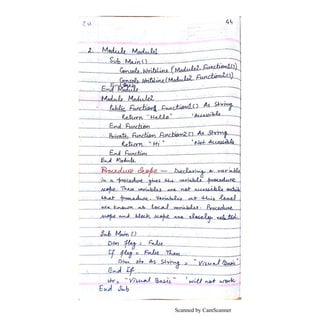 44
2. Module Module1
Sub Main()
Console.Writeline(Module2.Function1())
Console.Writeline(Module2.Function2())
End Sub
End Module
Module Module2
Public Function Function1() As String
Return "Hello" 'Accessible
End Function
Private Function Function2() As String
Return "Hi" 'Not Accessible
End Function
End Module
Procedure Scope – Declaring a variable
in a procedure gives the variable procedure
scope. These variables are not accessible outside
that procedure. Variables at this level
are known as local variables. Procedure
scope and block scope are closely related.
Sub Main()
Dim flag = False
If flag = False Then
Dim str As String = "Visual Basic"
End If
str = "Visual Basic" 'will not work
End Sub
Scanned by CamScanner